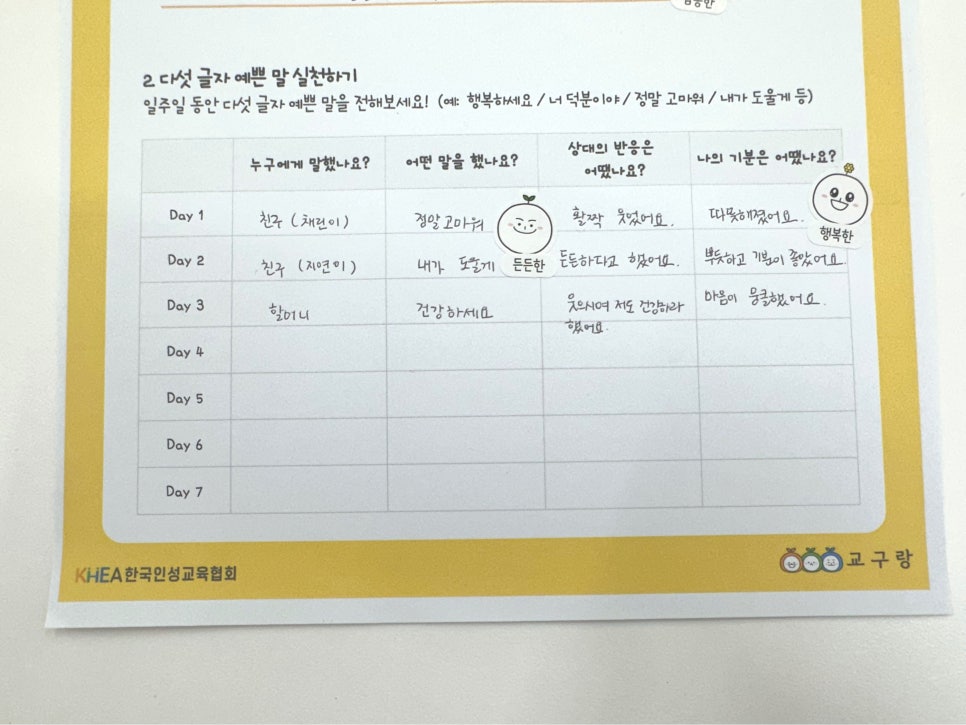 2. 다섯 글자 예쁜 말 실천하기
일주일 동안 다섯 글자 예쁜 말을 전해보세요! (예: 행복하세요 / 너 덕분이야 / 정말 고마워 / 내가 도울게 등)
누구에게 말했나요? 어떤 말을 했나요? 상대의 반응은 어땠나요? 나의 기분은 어땠나요?
Day 1 친구 (채린이) 정말고마워 활짝 웃었어요. 따뜻해졌어요.
행복한
Day 2 친구 (지연이) 내가 도울게 든든하다고 했어요. 뿌듯하고 기분이 좋았어요.
든든한
Day 3 할머니 건강하세요 웃으시며 저도 건강하라 했어요. 마음이 뭉클했어요.
Day 4
Day 5
Day 6
Day 7
KHEA한국인성교육협회
교구랑